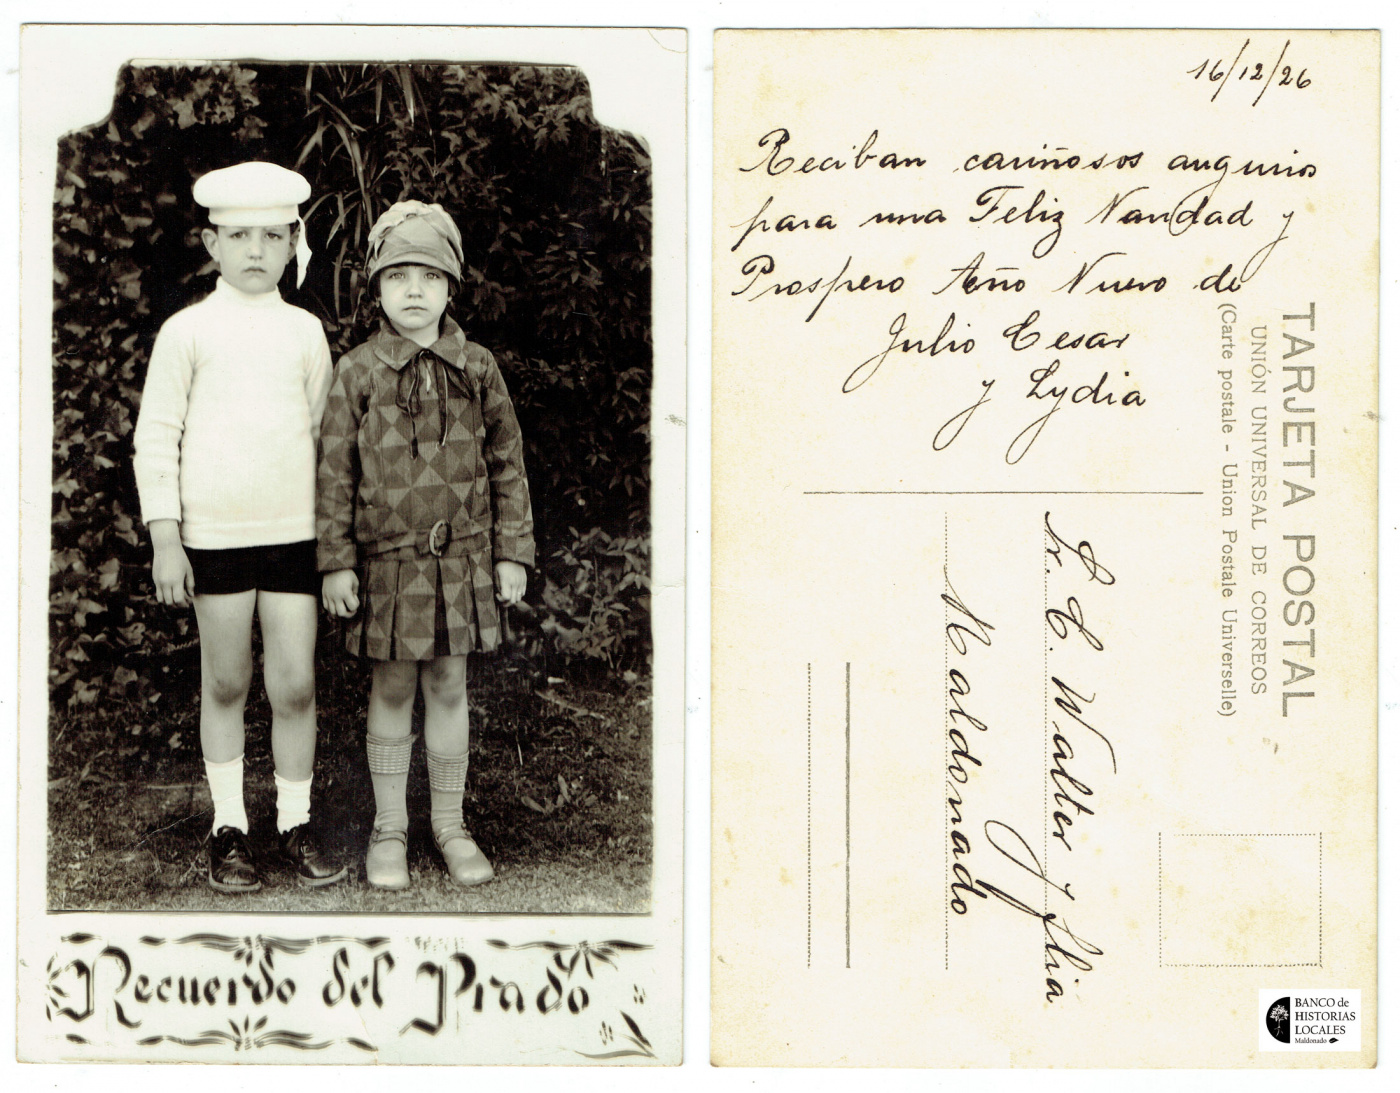 Recuerdo del Prado
16/12/26
Reciban cariñosos augurios
para una Feliz Navidad y
Prospero Año Nuevo de
Julio Cesar
y Lydia
TARJETA POSTAL
UNIÓN UNIVERSAL DE CORREOS
(Carte postale - Union Postale Universelle)
Sr. C. C. Walter y flia
Maldonado
BANCO de
HISTORIAS
LOCALES
Maldonado